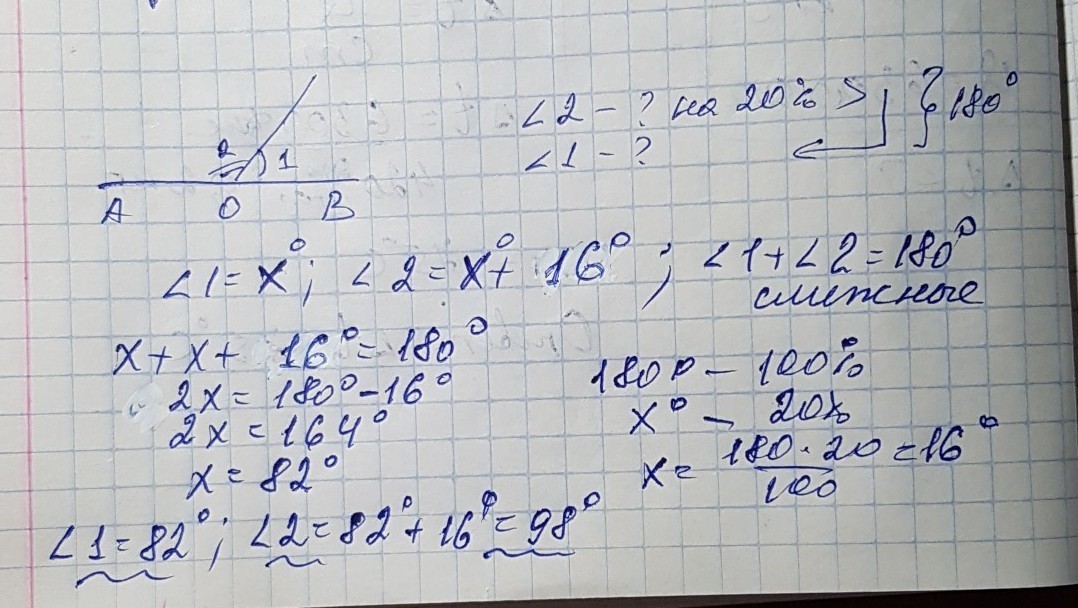 ∠2 - ? на 20% > } 180°
∠1 - ?
2 1
A O B
∠1 = x°; ∠2 = x° + 16°; ∠1 + ∠2 = 180°
смежные
x + x + 16° = 180°
2x = 180° - 16°
2x = 164°
x = 82°
180° - 100%
x° - 20%
x = 180 · 20 / 100 = 16°
∠1 = 82°; ∠2 = 82° + 16° = 98°